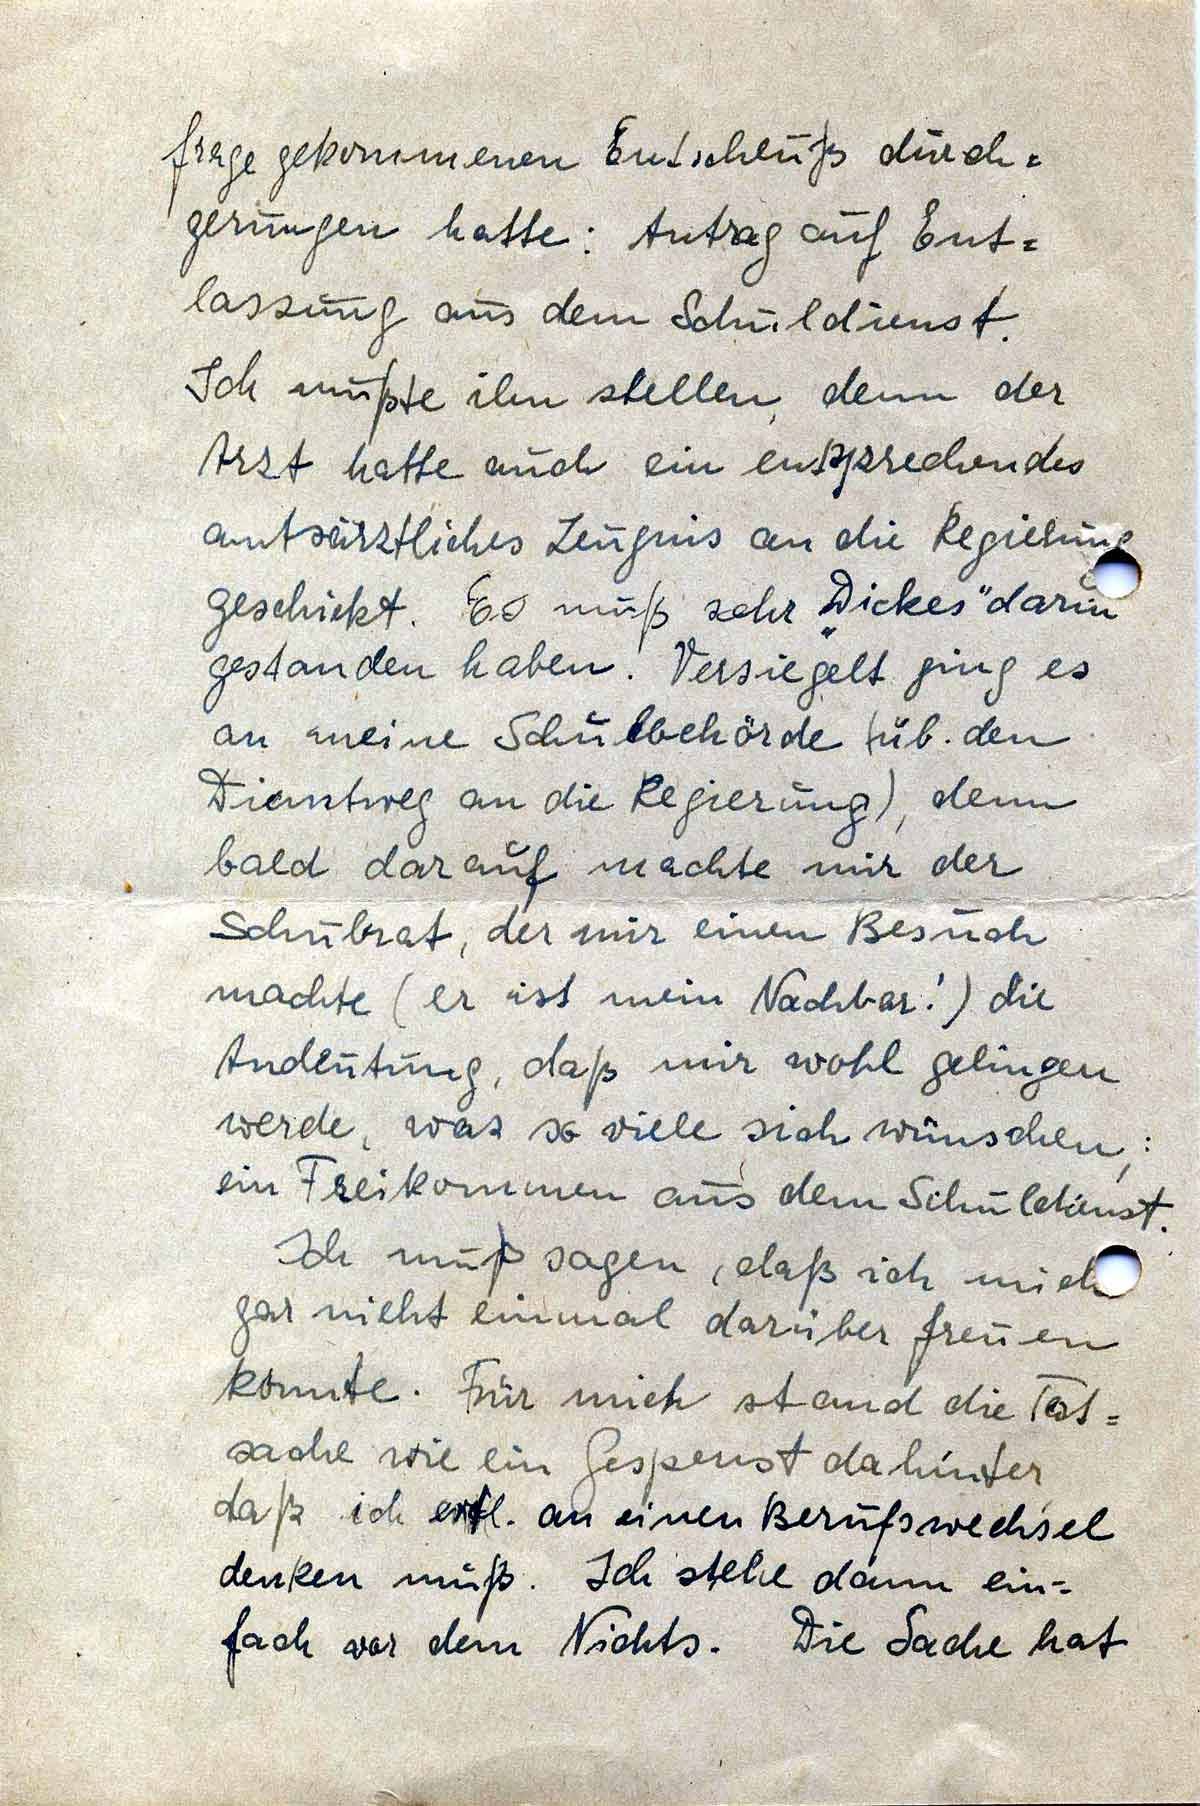 frage gekommenen Entschluß durch=
gerungen hatte: Antrag auf Ent=
lassung aus dem Schuldienst.
Ich mußte ihn stellen, denn der
Arzt hatte auch ein entsprechendes
amtsärztliches Zeugnis an die Regierung
geschickt. Es muß sehr „Dickes" darin
gestanden haben. Versiegelt ging es
an meine Schulbehörde (üb. den
Dienstweg an die Regierung), denn
bald darauf machte mir der
Schulrat, der mir einen Besuch
machte (er ist mein Nachbar!) die
Andeutung, daß mir wohl gelingen
werde, was so viele sich wünschen,:
ein Freikommen aus dem Schuldienst.
Ich muß sagen, daß ich mich
gar nicht einmal darüber freuen
konnte. Für mich stand die Tat=
sache wie ein Gespenst dahinter,
daß ich evtl. an einen Berufswechsel
denken muß. Ich stehe dann ein=
fach vor dem Nichts. Die Sache hat